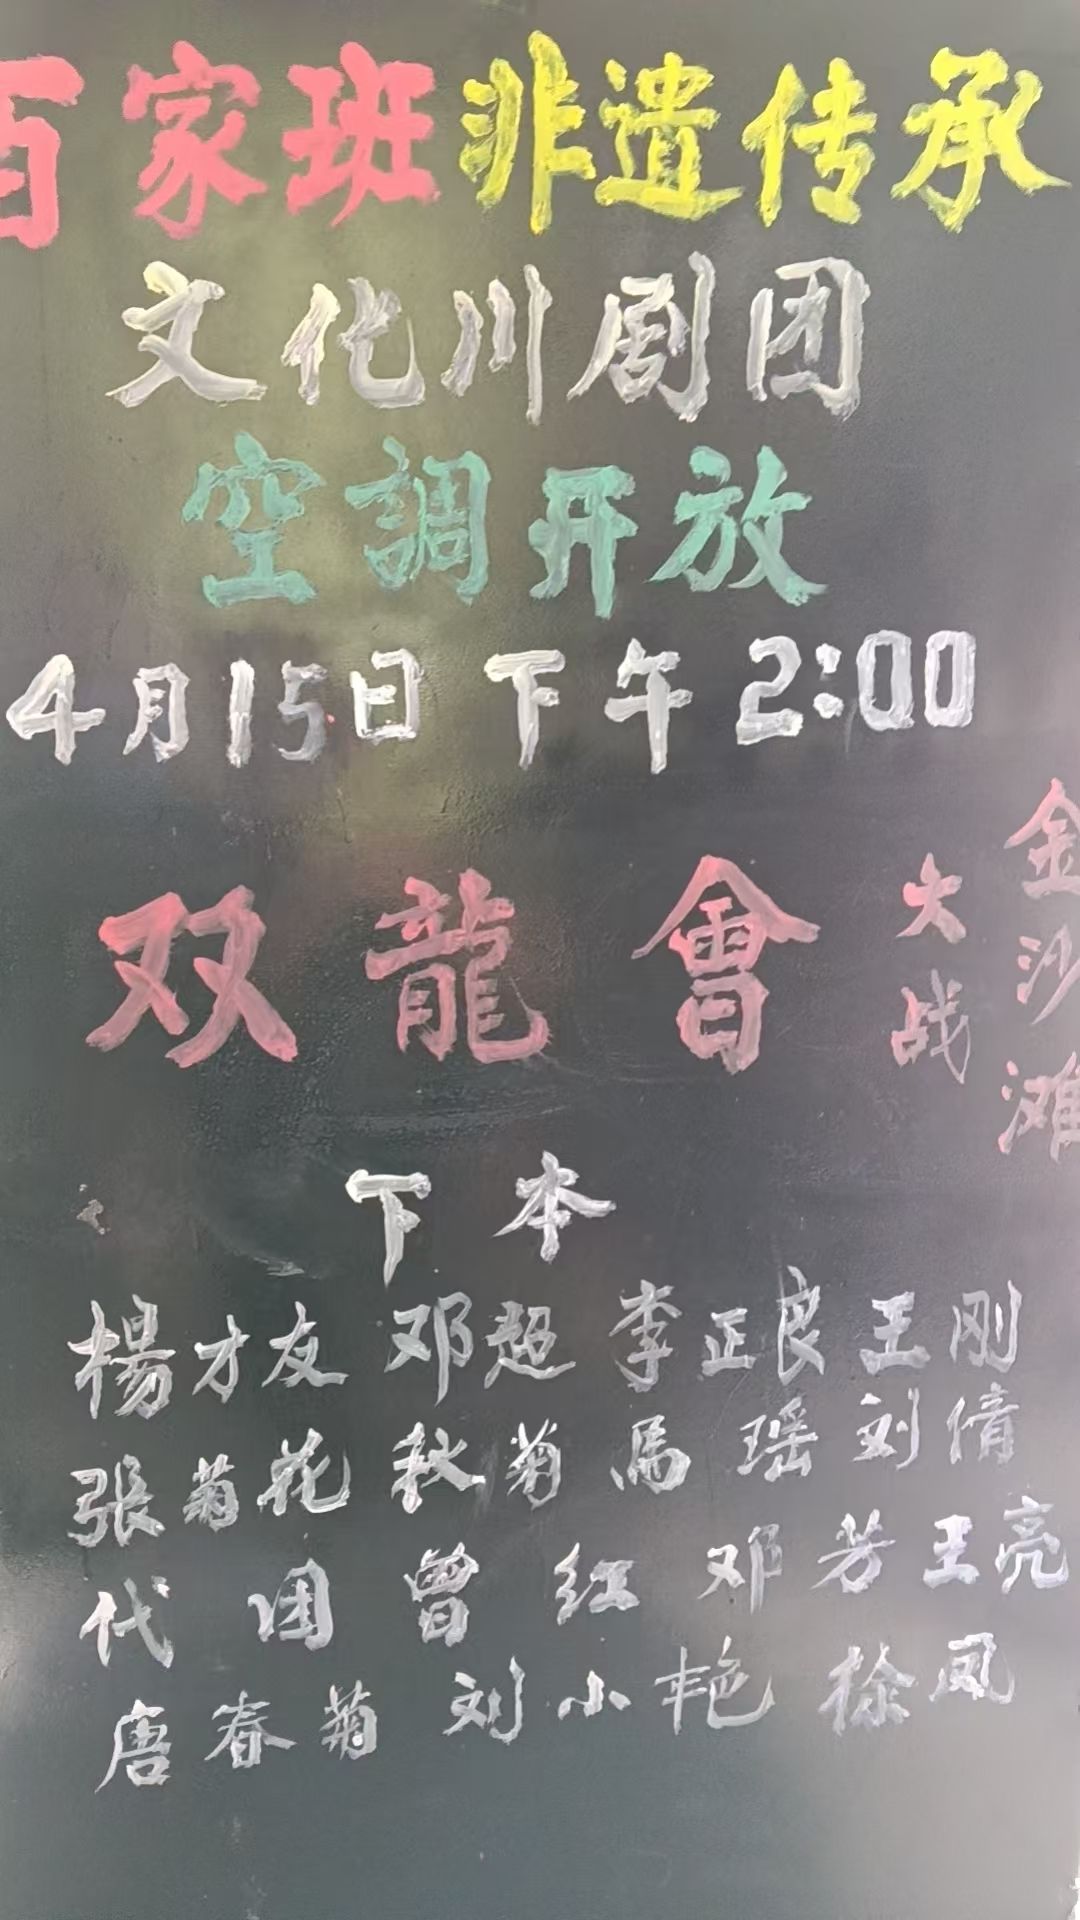 百家班非遗传承
文化川剧团
空調开放
4月15日 下午2:00
双龍會 大战 金沙滩
下本
楊才友 邓超 李正良 王刚
张菊花 秋菊 馬瑶 刘倩
代团 曾红 邓芳 王亮
唐春菊 刘小艳 徐凤